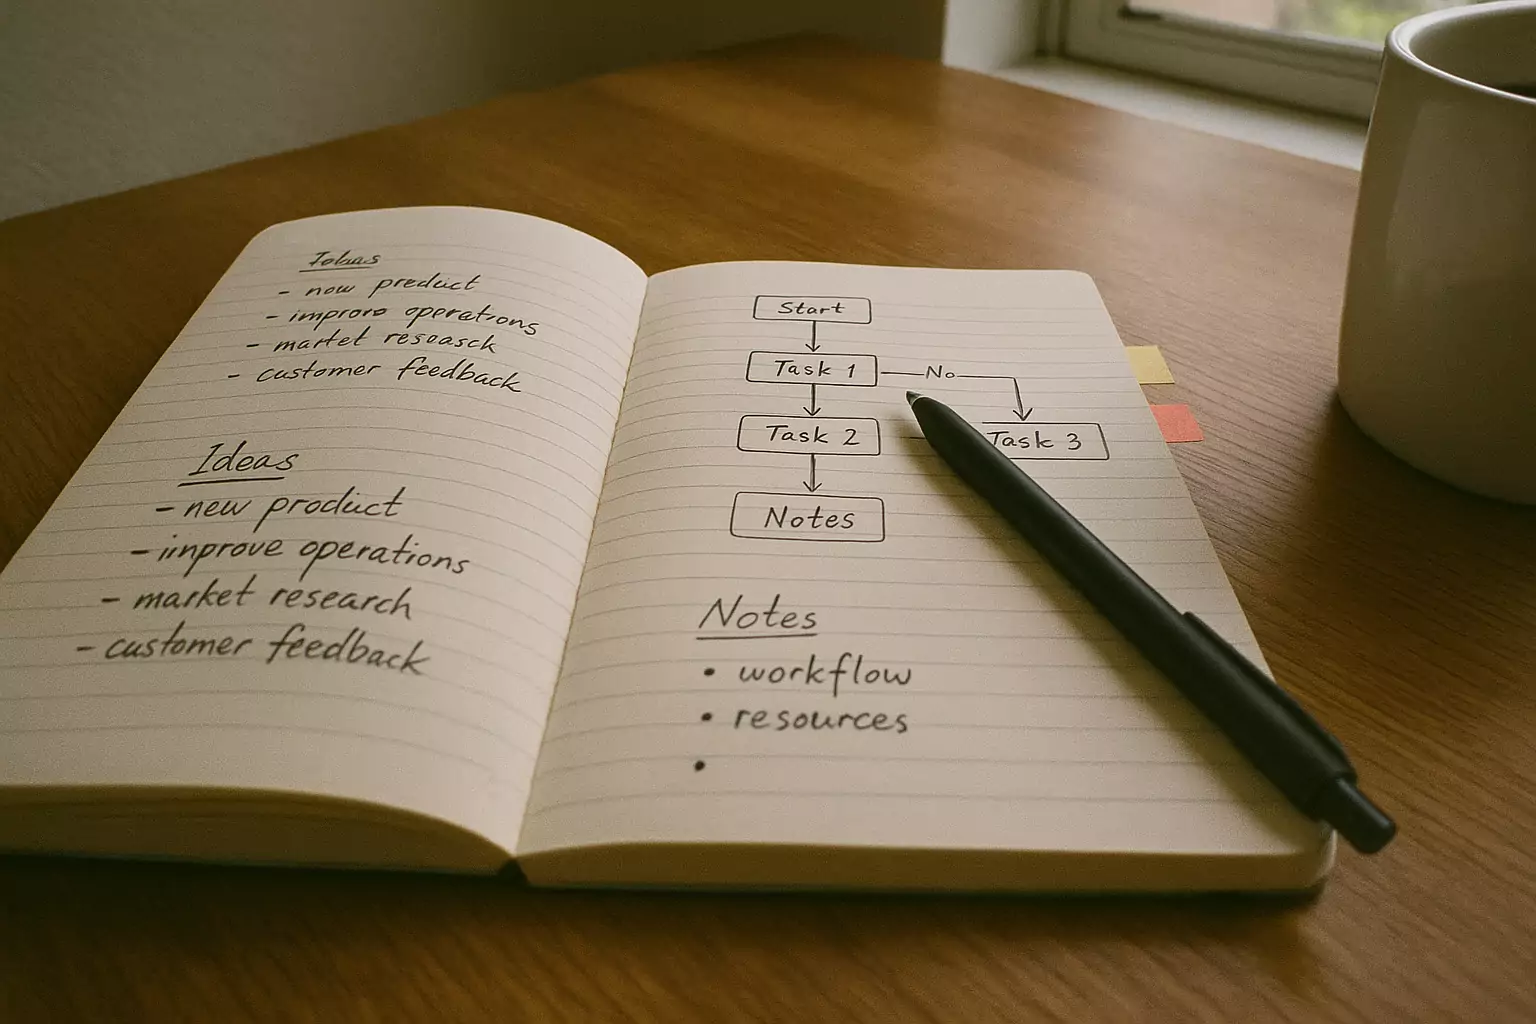 Ideas
- now preduct
- improro operations
- martet resoasck
- customer feedback
Ideas
- new product
- improve operations
- market research
- customer feedback
Start
Task 1
No
Task 2
Task 3
Notes
Notes
• workflow
• resources
•